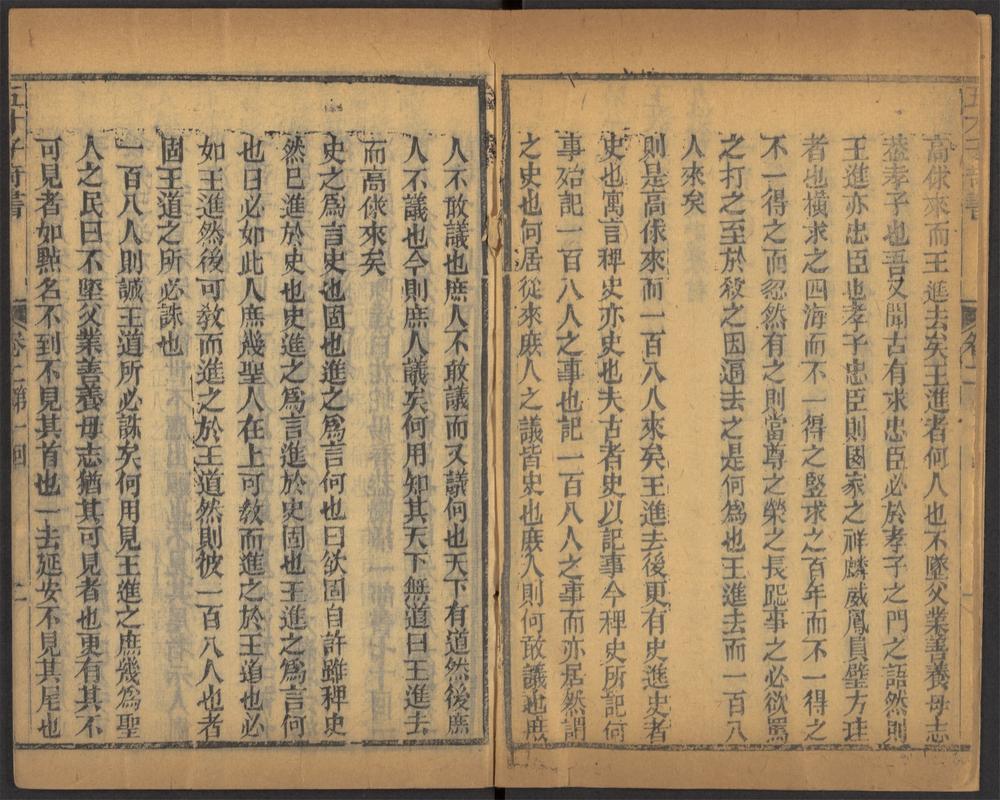 高俅來而王進去矣王進者何人也不墜父業善養母志
葢孝子也吾又聞古有求忠臣必於孝子之門之語然則
王進亦忠臣也孝子忠臣則國家之祥麟威鳳員璧方珪
者也橫求之四海而不一得之竪求之百年而不一得之
不一得之而忽然有之則當尊之榮之長跽事之必欲罵
之打之至於殺之因逼去之是何爲也王進去而一百八
人來矣
則是高俅來而一百八人來矣王進去後更有史進史者
史也寓言稗史亦史也夫古者史以記事今稗史所記何
事殆記一百八人之事也記一百八人之事而亦居然謂
之史也何居從來庶人之議皆史也庶人則何敢議也庶
人不敢議也庶人不敢議而又議何也天下有道然後庶
人不議也今則庶人議矣何用知其天下無道曰王進去
而高俅來矣
史之爲言史也固也進之爲言何也曰欲固自許雖稗史
然已進於史也史進之爲言進於史固也王進之爲言何
也曰必如此人庶幾聖人在上可敎而進之於王道也必
如王進然後可敎而進之於王道然則彼一百八人也者
固王道之所必誅也
一百八人則誠王道所必誅矣何用見王進之庶幾爲聖
人之民曰不墜父業善養母志猶其可見者也更有其不
可見者如㸃名不到不見其首也一去延安不見其尾也
五才子奇書
卷二第一回
二